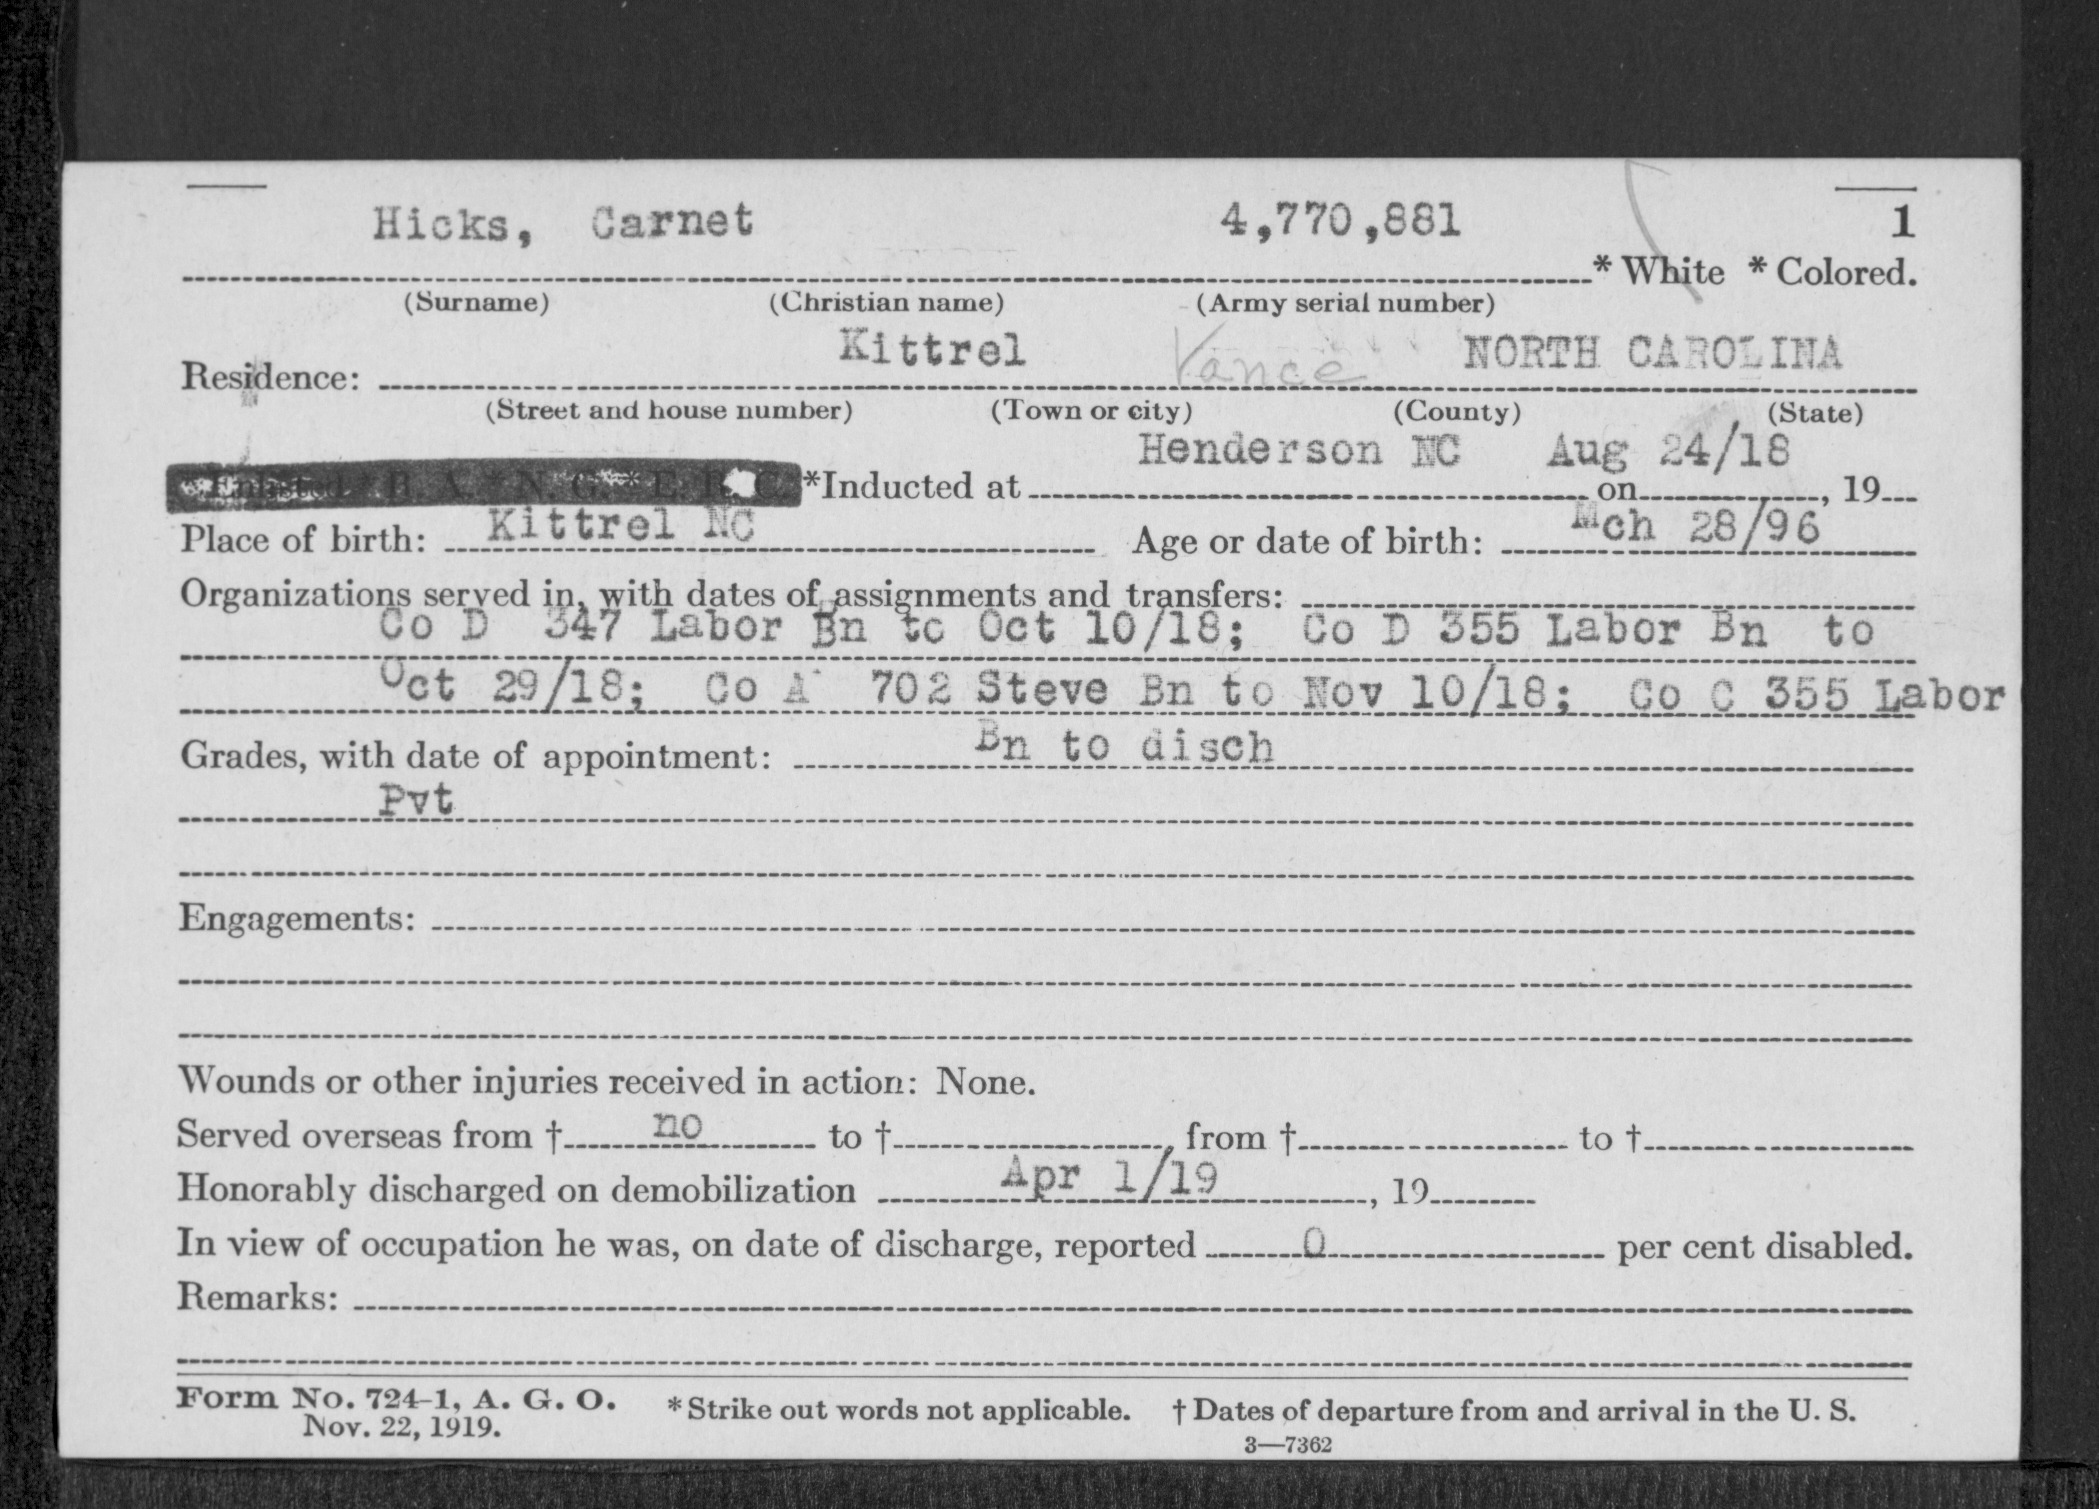 Hicks, Carnet 4,770,881 1
* White * Colored.
(Surname) (Christian name) (Army serial number)
Residence: Kittrel Vance NORTH CAROLINA
(Street and house number) (Town or city) (County) (State)
Enlisted * R. A. * N. G. * E. R. C. *Inducted at Henderson NC on Aug 24/18, 19
Place of birth: Kittrel NC Age or date of birth: Mch 28/96
Organizations served in, with dates of assignments and transfers:
Co D 347 Labor Bn to Oct 10/18; Co D 355 Labor Bn to
Oct 29/18; Co A 702 Steve Bn to Nov 10/18; Co C 355 Labor
Bn to disch
Grades, with date of appointment:
Pvt
Engagements:
Wounds or other injuries received in action: None.
Served overseas from † no to †, from † to †
Honorably discharged on demobilization Apr 1/19, 19
In view of occupation he was, on date of discharge, reported 0 per cent disabled.
Remarks:
Form No. 724-1, A. G. O. * Strike out words not applicable. † Dates of departure from and arrival in the U. S.
Nov. 22, 1919.
3—7362